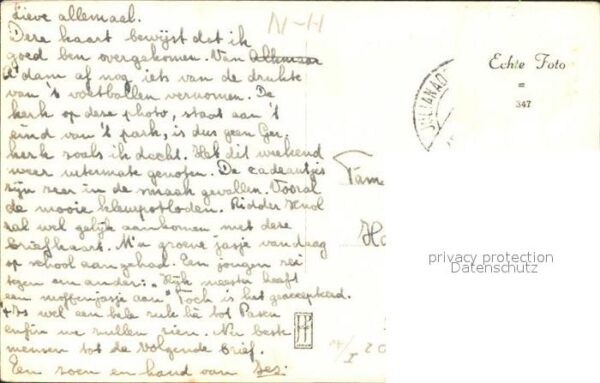 Lieve allemaal.
Deze kaart bewijst dat ik
goed ben overgekomen. Van Alkmaar
A'dam af nog iets van de drukte
van 't voetballen vernomen. De
kerk op deze photo, staat aan 't
eind van 't park, is dus geen Ger.
kerk zoals ik dacht. Heb dit weekend
weer uitermate genoten. De cadeautjes
zijn zeer in de smaak gevallen. Vooral
de mooie kleurpotloden. Ridder Knol
zal wel gelijk aankomen met deze
briefkaart. M'n groene jasje vandaag
op school aan gehad. Een jongen zei
tegen een ander: "Kijk meester heeft
een moffenjasje aan" Toch is het geaccepteerd.
Is wel een hele ruk hè tot Pasen
enfin we zullen zien. Nu beste
mensen tot de volgende brief.
Een zoen en hand van Jes:
N-H
Echte Foto
=
347
JULIANAD
Fam
Ho
privacy protection
Datenschutz